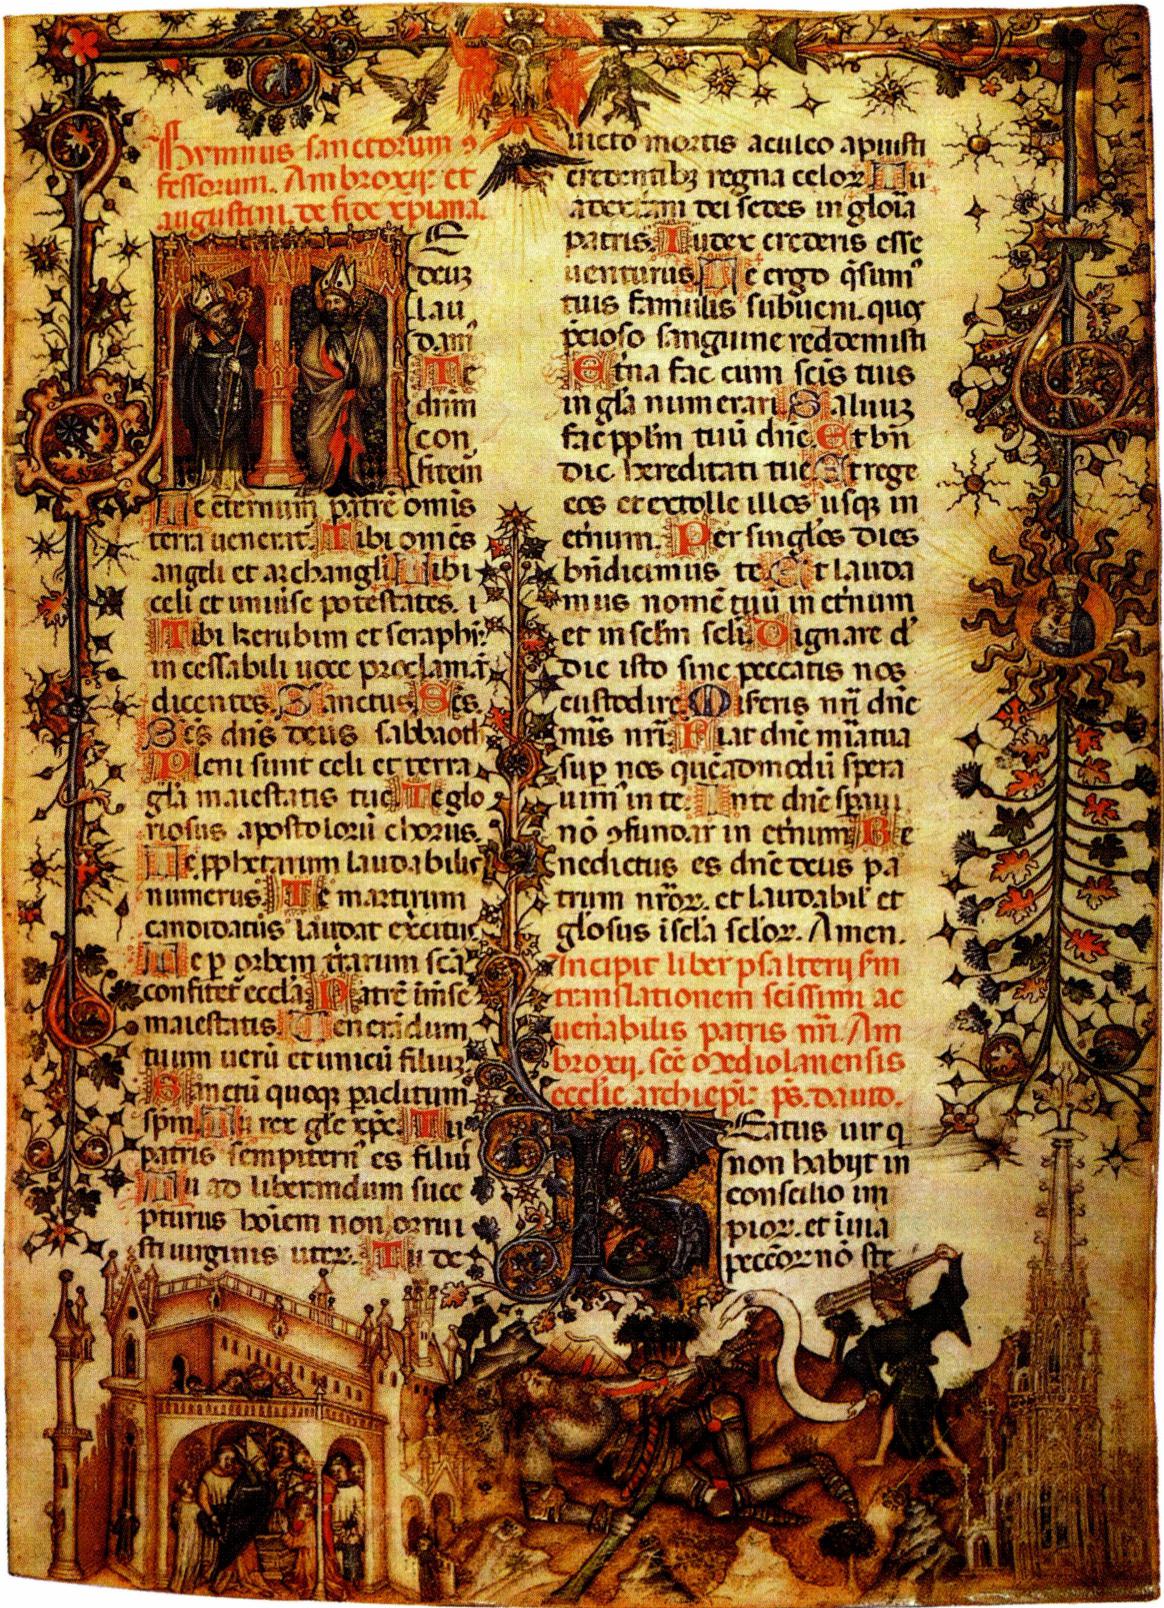 Hymnus sanctorum ꝯ
fessorum. Ambroxij. et
augustini. de fide xpiana.
TE
deuz
lau
dam᷒
Te
dnm̄
con
fitem᷒
Te eternum patrē omīs
terra uenerat᷒. Tibi omēs
angeli et archangli Tibi
celi et uniuīse potestates. i
Tibi kerubim et seraphī
in cessabili uoce proclamāt
dicentes. Sanctus. Scs.
Scs dn̄s deus sabbaoth
Pleni sunt celi et terra
gl̄a maiestatis tue Te glo
riosus apostolorū chorus.
Te ꝓphetarum laudabilis
numerus. Te martirum
candidatus laudat exercitus
Te ꝑ orbem trārum scā
confitet᷒ eccla Patrē imēse
maiestatis Uenerādum
tuum uerū et unicū filiuz
Sanctū quoqꝫ paclitum
spm. Tu rex gl̄e xp̄e. Tu
patris sempitern᷒ es filiu᷒
Tu ad liberandum susce
pturus hōiem non orrui
sti uirginis uter. Tu de
uicto mortis aculeo apuisti
credentibꝫ regna celoꝝ Tu
ad dexteram dei sedes in gloīa
patris. Iudex crederis esse
uenturus Te ergo q̄sum᷒
tuis famulis subueni. quos
p̄cioso sanguine reddemisti
Etna fac cum scīs tuis
in gl̄a numerari Saluuz
fac pplm̄ tuū dn̄e Et bn̄
dic hereditati tue Et rege
eos et extolle illos usqꝫ in
etnum. Per singl̄os dies
bn̄dicimus te Et lauda
mus nomē tuū in etnum
et in sclm̄ scli. Dignare d᷒
die isto sine peccatis nos
custodire Miseris nr̄i dn̄e
mis᷒ nr̄i Fiat dn̄e mīa tua
sup nos quēadmodū spera
uim᷒ in te. In te dn̄e spaui
nō ꝯfundar in etnum Be
nedictus es dn̄e deus pa
trum nr̄oꝝ. et laudabil᷒ et
gl̄osus ī scla scloꝝ. Amen.
Incipit liber psalterij sm̄
translationem scissimi ac
uenabilis patris nr̄i. Am
broxij. scē mediolanensis
ecclīe archiepī. ps̄. dauid.
BEatus uir q
non habijt in
consilio im
pioꝝ. et ī uia
peccōꝝ nō ste